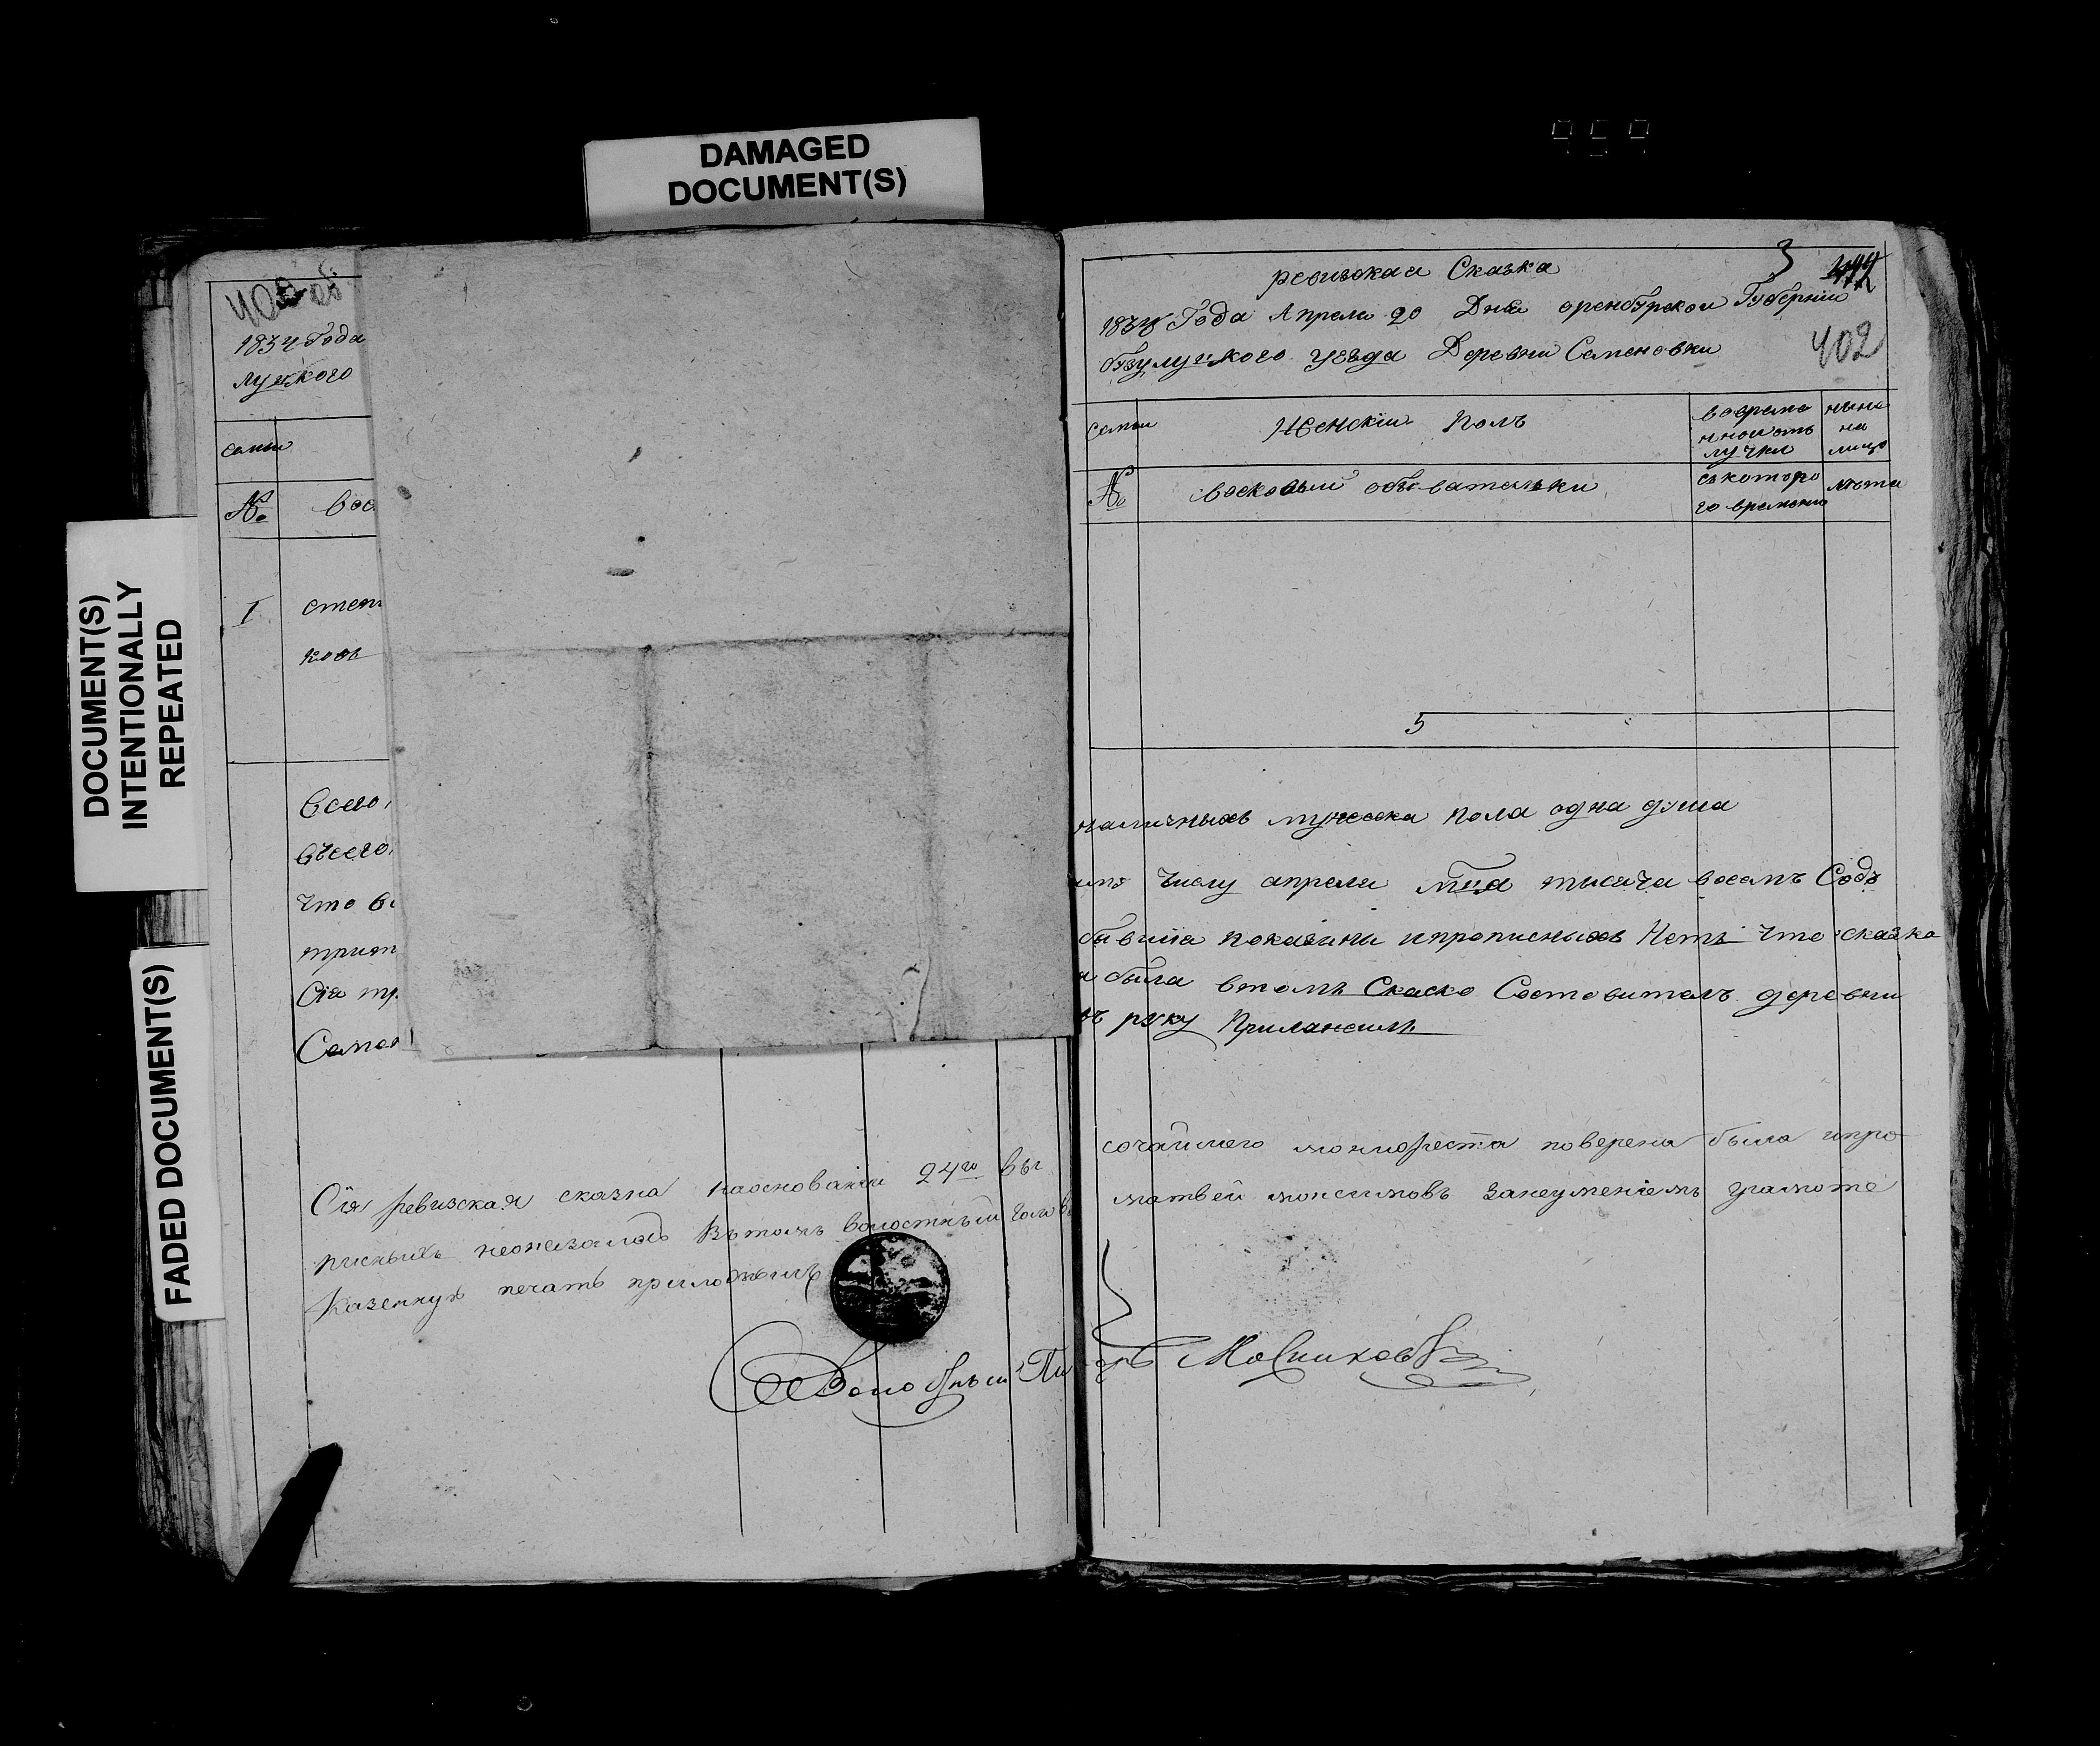 DAMAGED
DOCUMENT(S)
DOCUMENT(S)
INTENTIONALLY
REPEATED
FADED DOCUMENT(S)
1834 Года
лузкого
семьи
№
I
степ
Всего
что в
Сия
Сия ревизская сказка наоснованіи 24го Вы
писныхъ неоказалось Вътомъ волостный голова
Казенную печать приложилъ
Волостный Пи
3
402
ревизская Сказка
1834 Года Апреля 20 Дня оренбурской Губерніи
бузулуцкого уезда Деревни Семеновки
семьи
Женскій полъ
вовреме
нной отъ
лучки
ныне
на
лицо
№
съкоторо
го времени
лета
5
наличныхъ мужеска пола одна душа
числу апреля мца тысяча восемъ Содъ
показаны ипрописныхъ Нетъ что сказка
была втомъ Скаске Составителъ деревни
руку Приложилъ
сочайшего монифеста поверена была ипро
матвей моксимовъ занеумениемъ грамоте